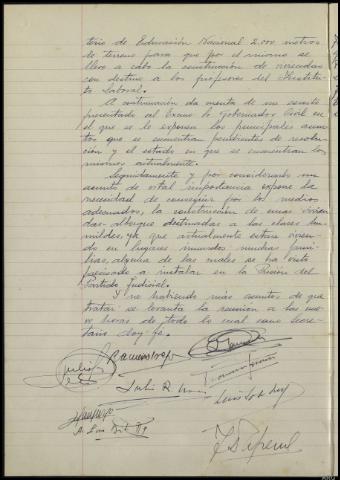 terio de Educación Nacional 2.000 metros
de terreno para que por el mismo se
lleve a cabo la construcción de viviendas
con destino a los profesores del Instituto
Laboral.
A continuación da cuenta de un escrito
presentado al Excmo Sr Gobernador Civil en
el que se le exponen los principales asuntos
que se encuentran pendientes de resolución
y el estado en que se encuentran los
mismos actualmente.
Seguidamente y por considerarlo un
asunto de vital importancia expone la
necesidad de conseguir por los medios
adecuados, la construcción de unas viviendas
albergue destinadas a las clases humildes,
ya que actualmente estan viviendo
en lugares inmundos muchas familias,
alguna de las cuales se ha visto
precisado a instalar en la Prisión del
Partido Judicial.
Y no habiendo más asuntos de que
tratar se levanta la reunión a las nueve
horas de todo lo cual como Secretario
doy fe.
Julio R.